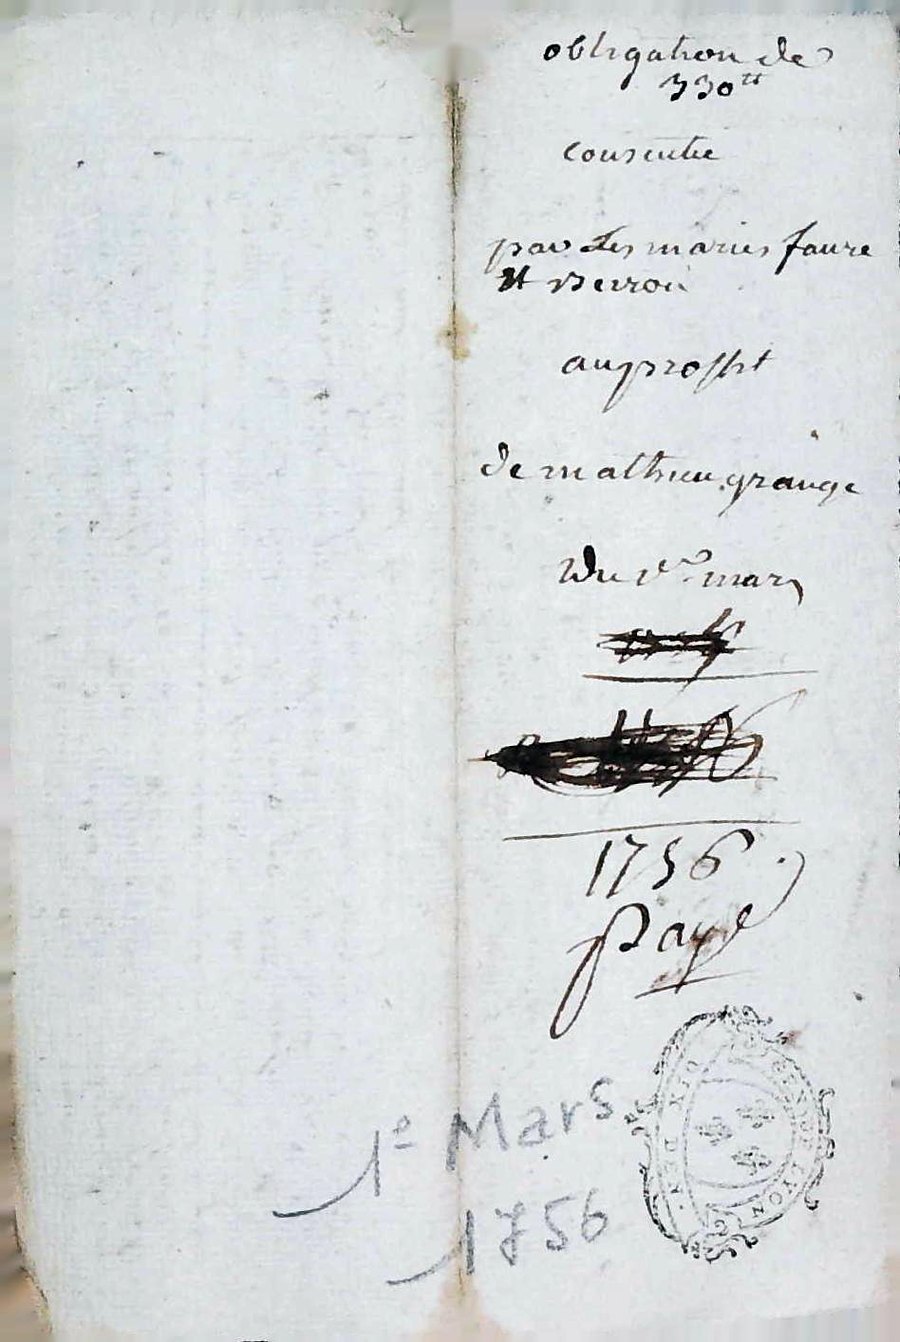 obligation de
330tt
consentie
par Les maries faure
Et
auproffit
de mathieu grange
Du 1er mars
1756
Payé
1e Mars
1756
DIX DEN. LYON